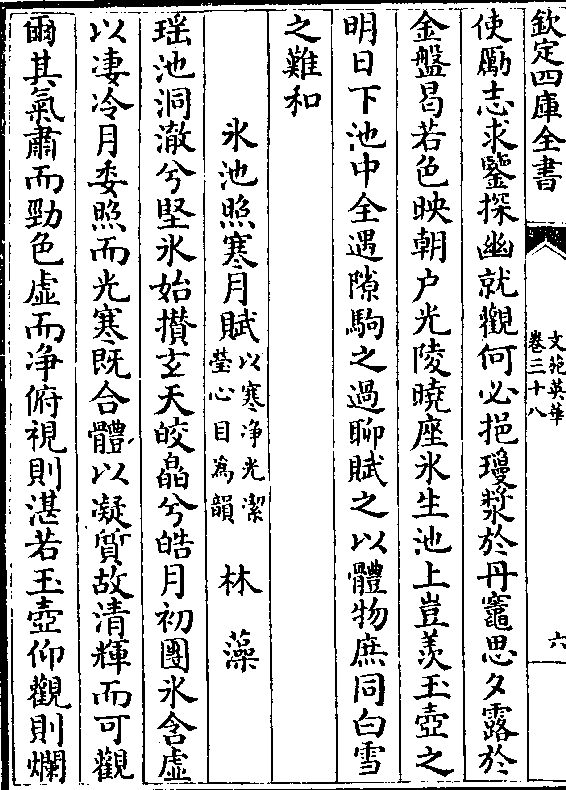 欽定四庫全書
文苑英華
卷三十八
六
使勵志求鑒探幽就觀何必挹瓊漿於丹竈思夕露於
金盤曷若色映朝户光陵曉座氷生池上豈羡玉壺之
明日下池中全遇隙駒之過聊賦之以體物庶同白雪
之難和
氷池照寒月賦以寒净光潔瑩心目為韻 林藻
瑶池洞澈兮堅氷始攅玄天皎皛兮皓月初團氷含虚
以凄冷月委照而光寒既合體以凝質故清輝而可觀
爾其氣肅而勁色虚而净俯視則湛若玉壺仰觀則爛